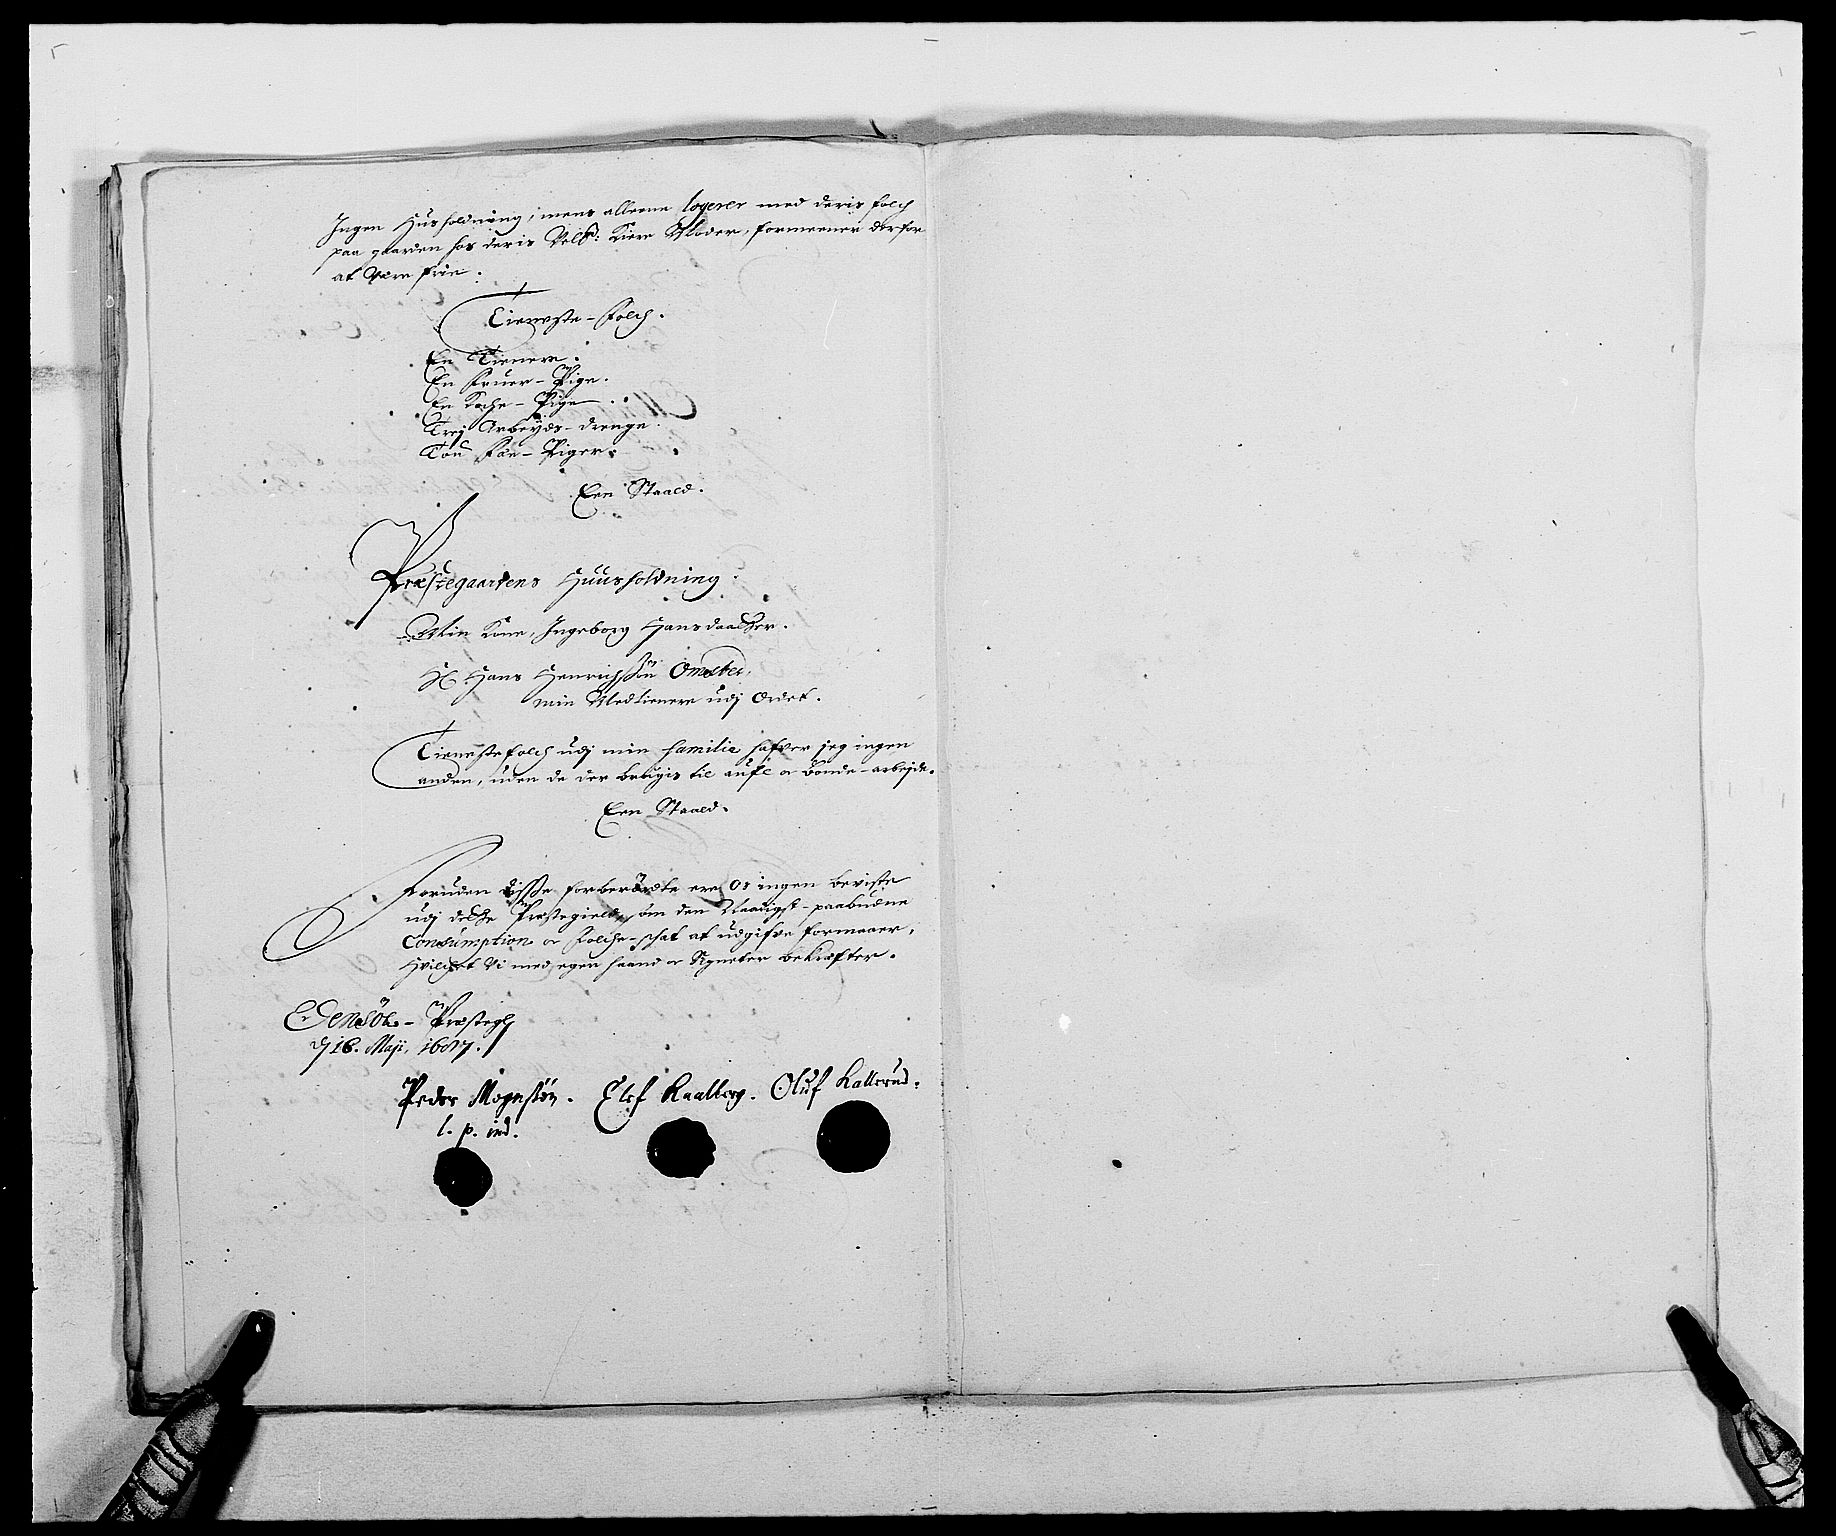 Ingen Huusholdning, mens alleene logerer med deris folch
paa gaarden hos deris Velb: Kiere Moder, formeener derfor
at være frie.
Tieneste-Folch.
En Tienere.
En Fruer-Pige.
En Koche-Pige.
Trej Arbeyds-drenge.
Tou Fæe-Piger.
Een Staald.
Præstegaardens Huusholdning.
Min Kone, Ingeborg Hansdaatter.
Hr. Hans Henrichssøn
min Medtienere udj Ordet.
Tienestefolch udj min familie hafver jeg ingen
anden, uden de der brugis til aufl oc bonde-arbejde.
Een Staald.
Foruden disse forberørdte ere os ingen beviste
udj dette Præstegield, som den Naadigst-paabudne
Consumption oc Folche-schat at udgifve formaaer,
Hvilchet Vi med egen haand oc Signeter bekræfter.
Præstegld
dj 16. Maji, 1687.
Peder Mognssøn. Elef Kaalberg. Oluf Kallerud.
l. p. ind.